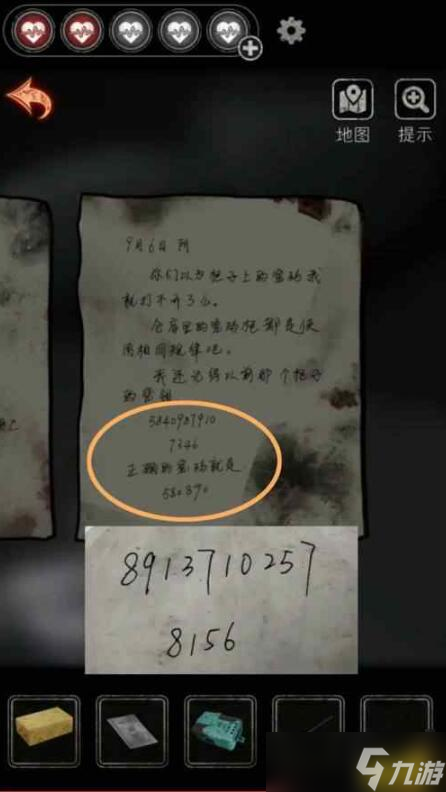 地图
提示
9月6日 阴
你们以为把子上的密码我
就打不开了么。
仓库里的密码把都是使
用相同规律吧。
我还记得以前那个把子
的密码
5840987910
7346
正确的密码就是
580890
8913710257
8156
九游